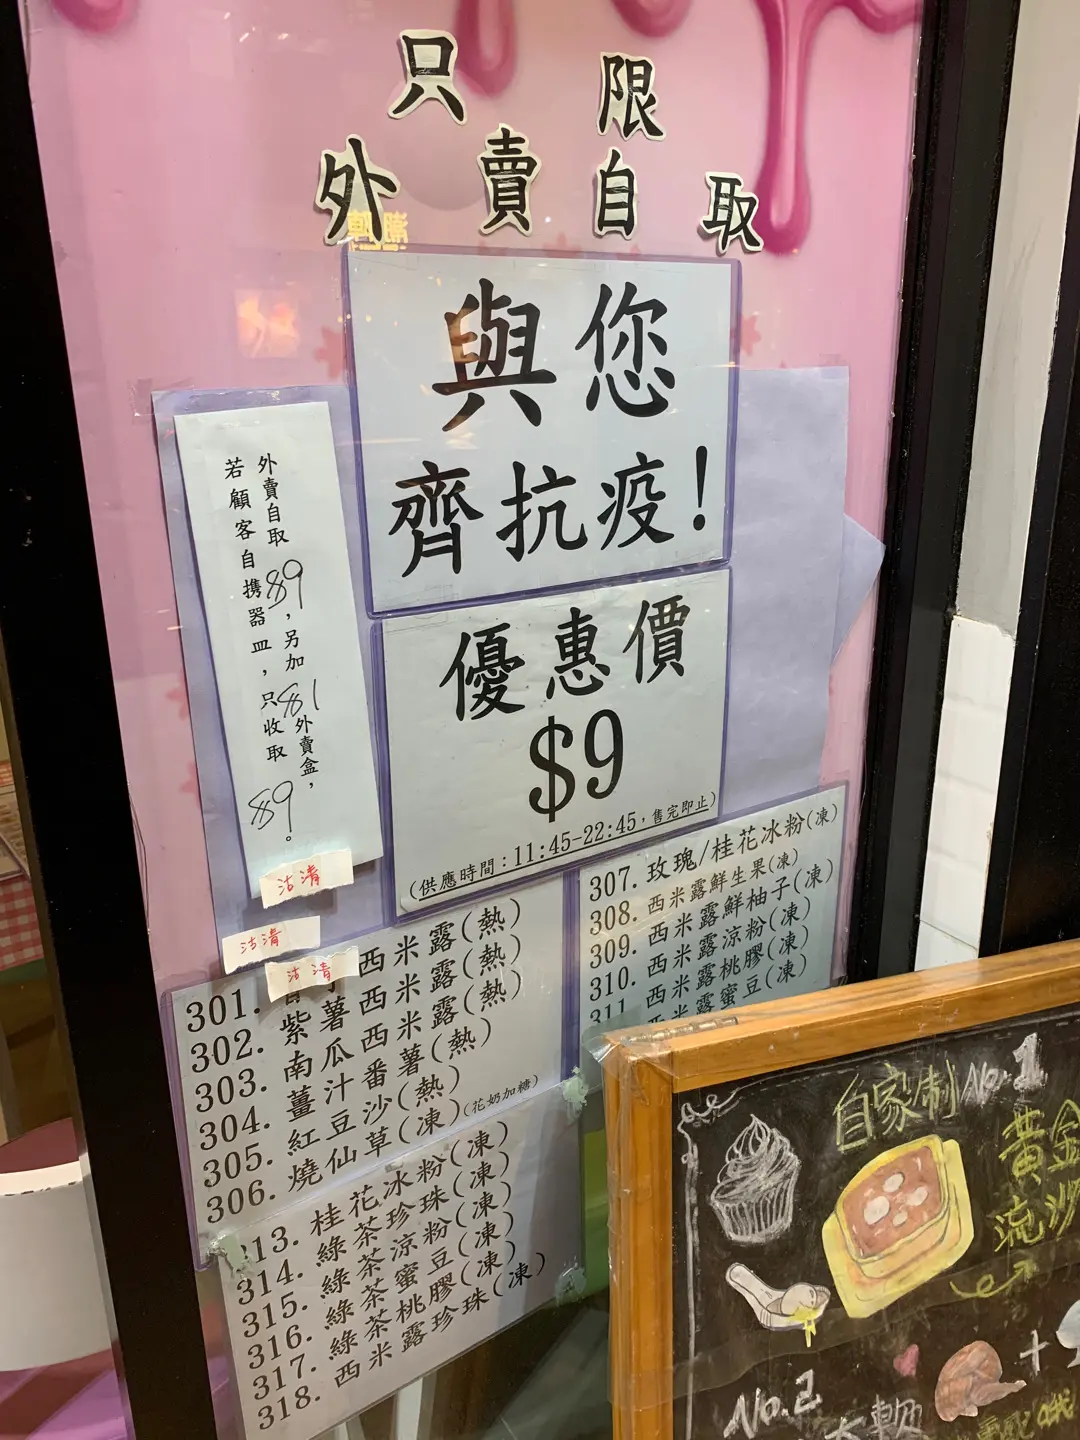 只限
外賣自取
與您
齊抗疫!
優惠價
$9
(供應時間：11:45-22:45，售完即止)
外賣自取$9，另加$1外賣盒，
若顧客自携器皿，只收取$9。
沽清
沽清
沽清
301. 西米露(熱)
302. 紫薯西米露(熱)
303. 南瓜西米露(熱)
304. 薑汁番薯(熱)
305. 紅豆沙(熱)
306. 燒仙草(凍)(花奶加糖)
307. 玫瑰/桂花冰粉(凍)
308. 西米露鮮生果(凍)
309. 西米露鮮柚子(凍)
310. 西米露涼粉(凍)
311. 西米露桃膠(凍)
西米露蜜豆(凍)
313. 桂花冰粉(凍)
314. 綠茶珍珠(凍)
315. 綠茶涼粉(凍)
316. 綠茶蜜豆(凍)
317. 綠茶桃膠(凍)
318. 西米露珍珠(凍)
自家制No.1
黃金
流沙
No.2